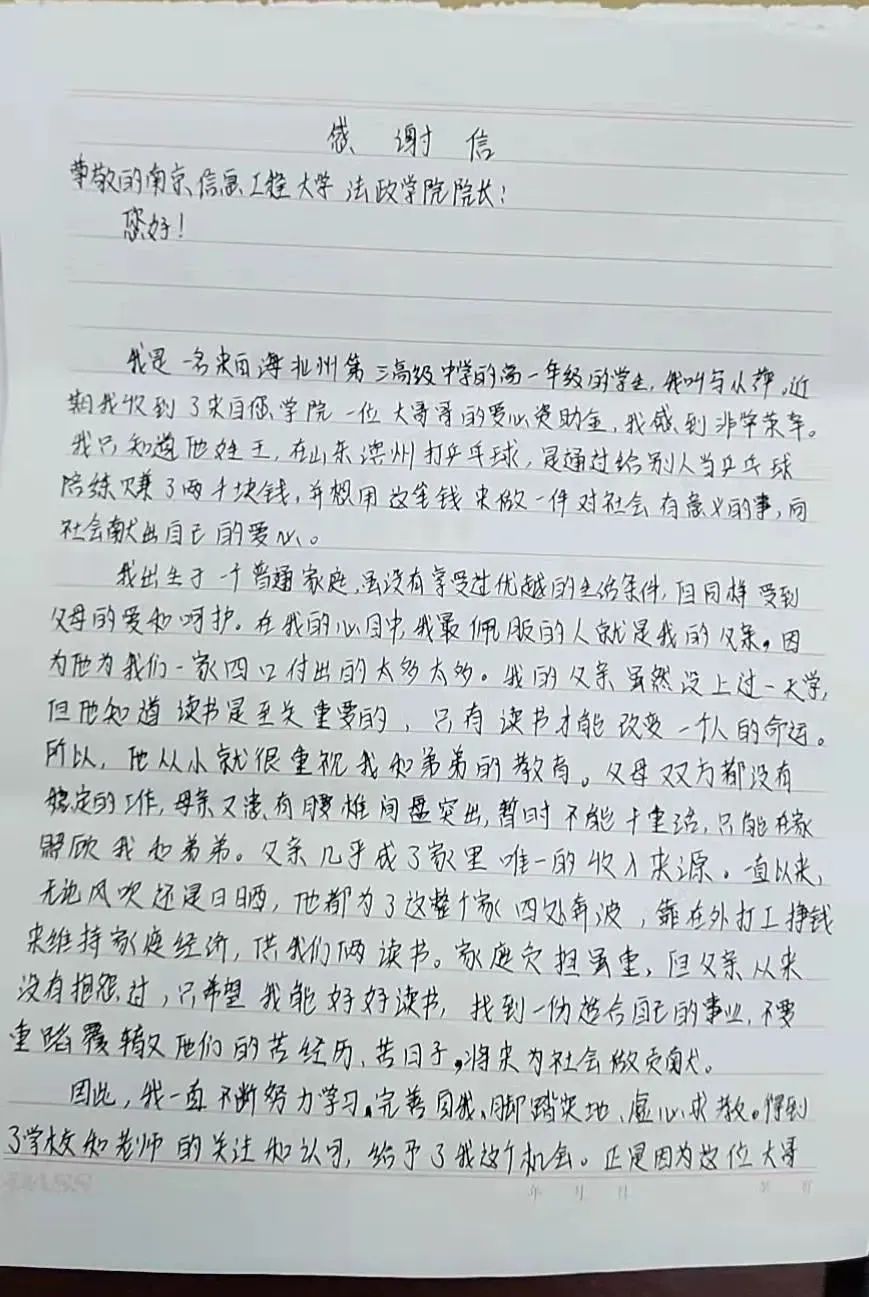 感谢信
尊敬的南京信息工程大学法政学院院长:
您好!
我是一名来自海北州第三高级中学的高一年级的学生,我叫马从萍,近
期我收到了来自您学院一位大哥哥的爱心资助金,我感到非常荣幸。
我只知道他姓王,在山东滨州打乒乓球,是通过给别人当乒乓球
陪练赚了两千块钱,并想用这笔钱来做一件对社会有意义的事,向
社会献出自己的爱心。
我出生于一个普通家庭,虽没有享受过优越的生活条件,但同样受到
父母的爱和呵护。在我的心目中,我最佩服的人就是我的父亲,因
为他为我们一家四口付出的太多太多。我的父亲虽然没上过一天学,
但他知道读书是至关重要的,只有读书才能改变一个人的命运。
所以,他从小就很重视我和弟弟的教育。父母双方都没有
稳定的工作,母亲又患有腰椎间盘突出,暂时不能干重活,只能在家
照顾我和弟弟。父亲几乎成了家里唯一的收入来源。一直以来,
无论风吹还是日晒,他都为了这整个家四处奔波,靠在外打工挣钱
来维持家庭经济,供我们俩读书。家庭负担虽重,但父亲从来
没有抱怨过,只希望我能好好读书,找到一份适合自己的事业,不要
重蹈覆辙他们的苦经历、苦日子,将来为社会做贡献。
因此,我一直不断努力学习,完善自我、脚踏实地、虚心求教。得到
了学校和老师的关注和认可,给予了我这个机会。正是因为这位大哥
年 月 日 第 页